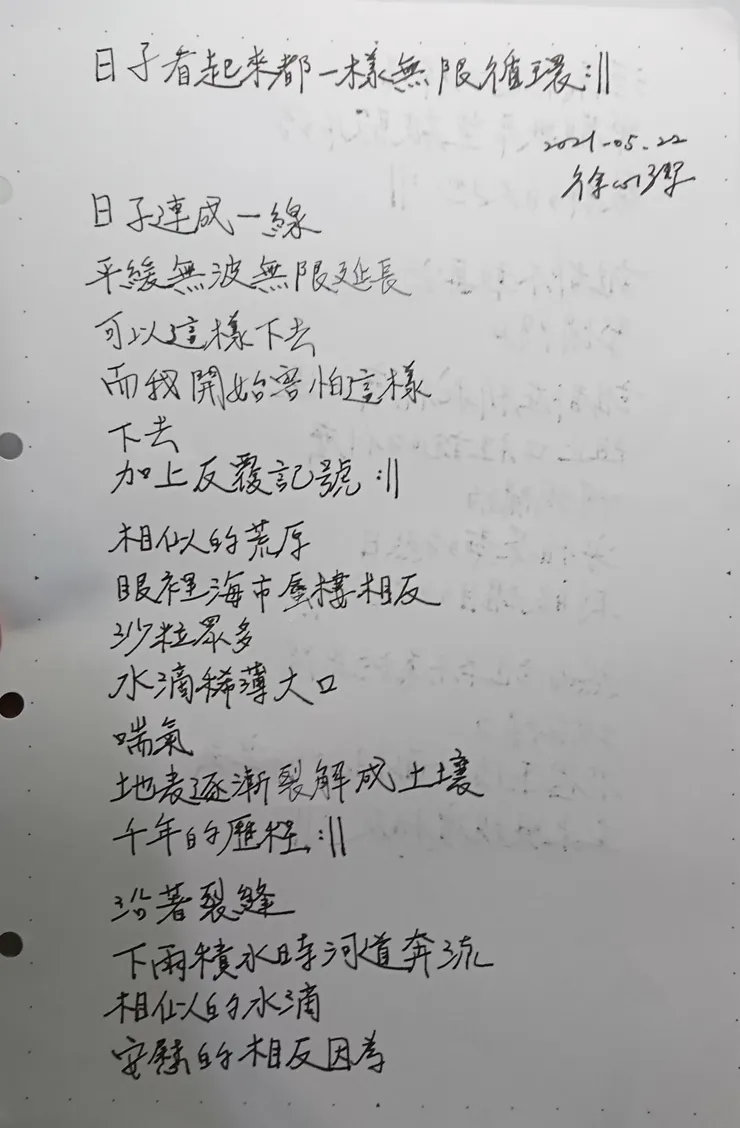 日子看起來都一樣無限循環:||
2021-05.22
日子連成一線
平緩無波無限延長
可以這樣下去
而我開始害怕這樣
下去
加上反覆記號:||
相似的荒原
眼裡海市蜃樓相反
沙粒眾多
水滴稀薄大口
喘氣
地表逐漸裂解成土壤
千年的歷程:||
沿著裂縫
下雨積水時河道奔流
相似的水滴
安靜的相反因為